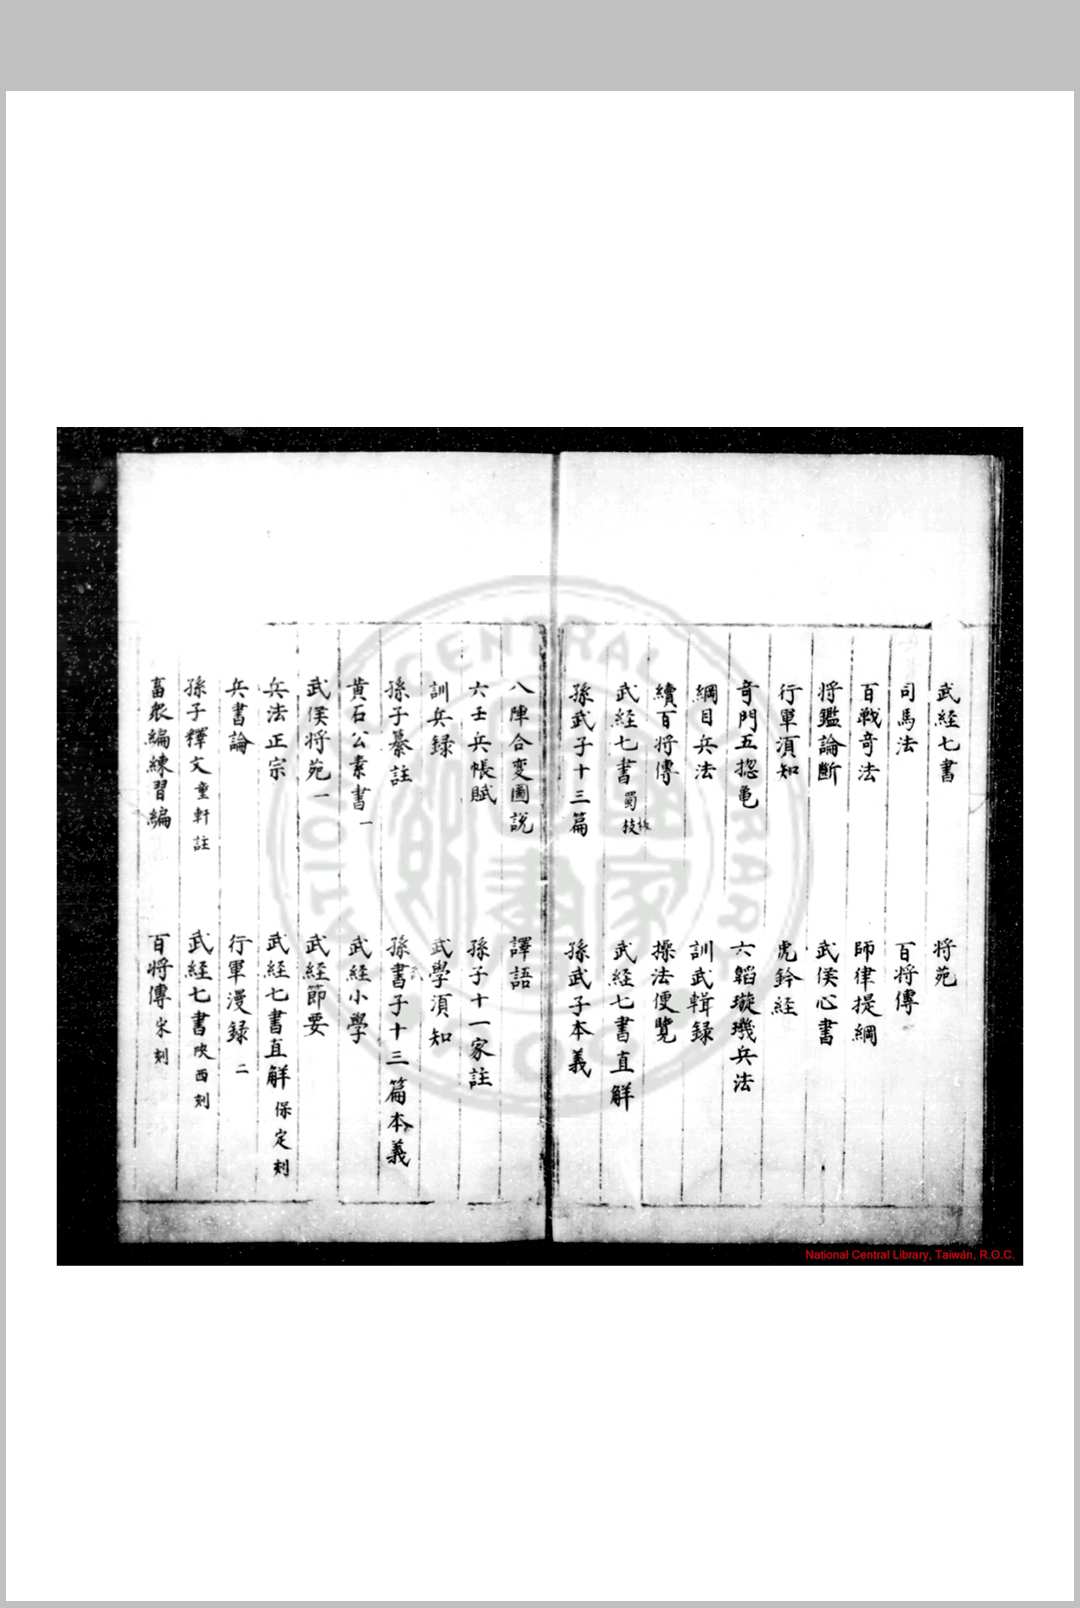 武经七書 将苑
司馬法 百将傳
百戦奇法 師律提綱
将鑑論断 武侯心書
行軍須知 虎鈐経
奇門五揔亀 六韜璇璣兵法
綱目兵法 訓武輯録
續百将傳 操法便覽
武経七書蜀 武经七書直觧
孫武子十三篇 孫武子本義
八陣合变圖説 譯語
六壬兵帳賦 孫子十一家註
訓兵録 武學須知
孫子纂註 孫書子十三篇本義
黄石公素書一 武经小學
武侯将苑一 武经節要
兵法正宗 武经七書直觧保定刻
兵書論 行軍漫録二
孫子釋文童軒註 武经七書陜西刻
畜衆編練習編 百将傳宋刻
CENTRAL
National Central Library, Taiwan, R.O.C.